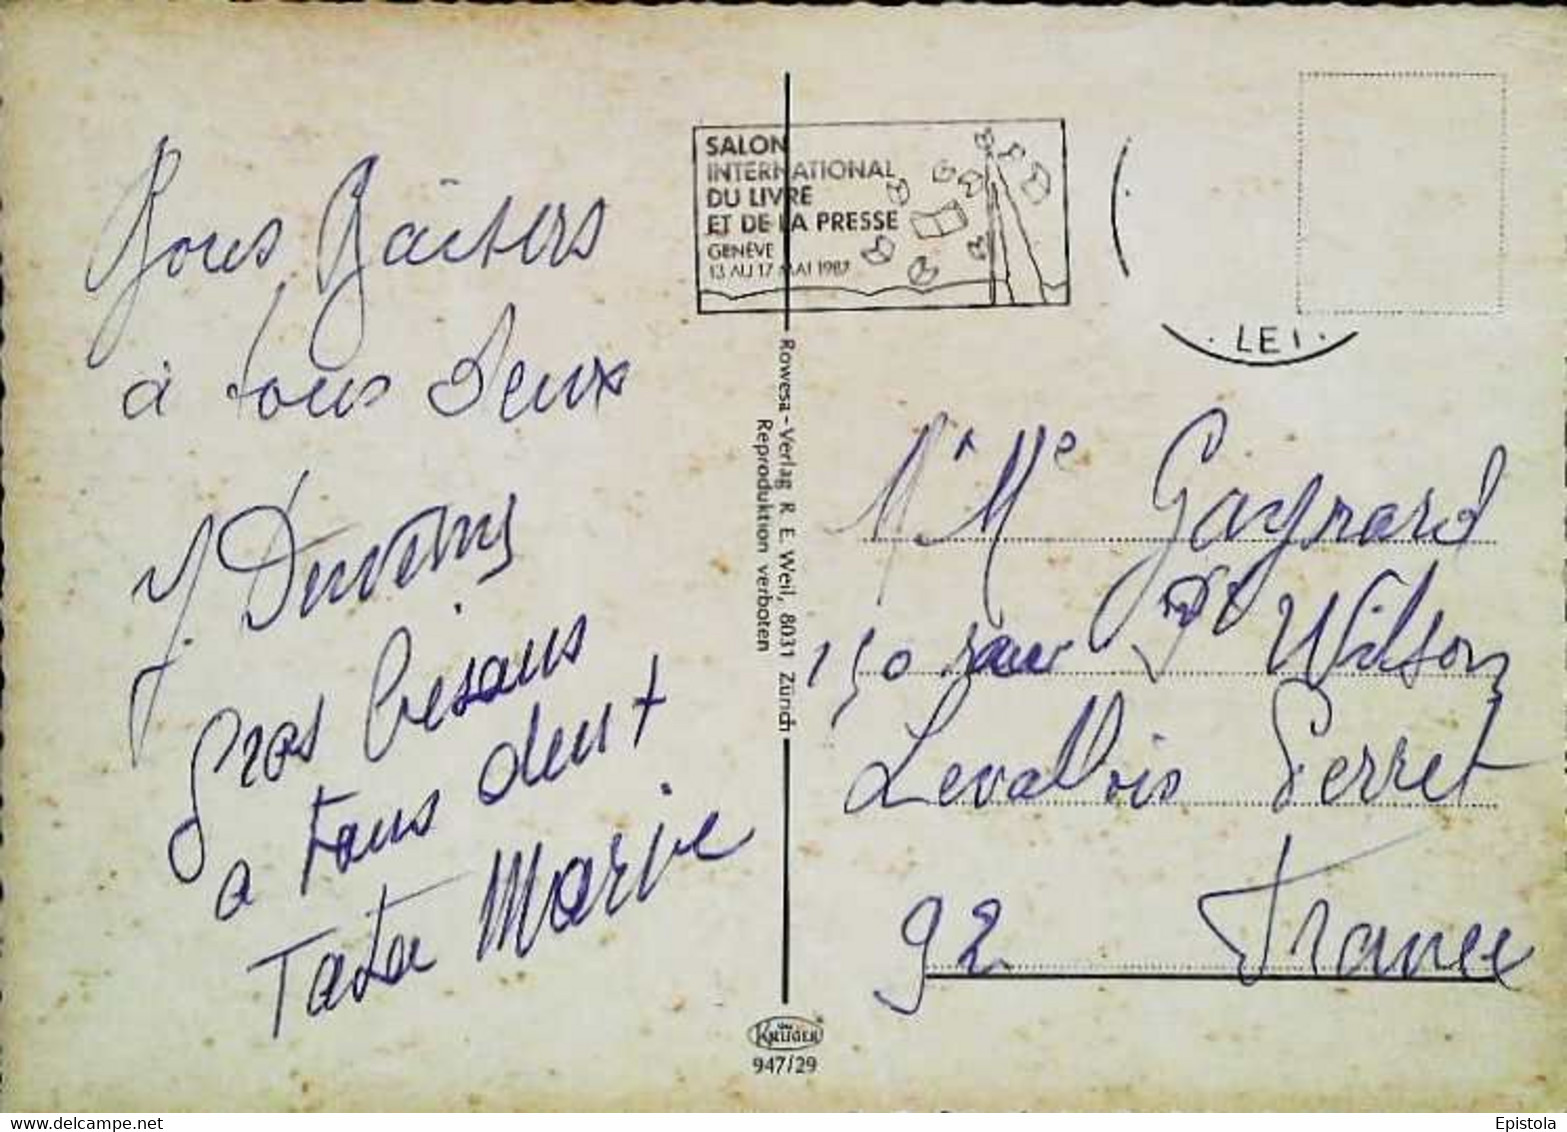 Bons Baisers
à tous deux
J.
Gros bisous
a tous deux
Tata Marie
SALON
INTERNATIONAL
DU LIVRE
ET DE LA PRESSE
GENÈVE
13 AU 17 MAI 1987
· LEI ·
Rowesa - Verlag R. E. Weil, 8031 Zürich
Reproduktion verboten
KRÜGER
947/29
M. Me Gagnard
150 rue Pt Wilson
Levallois Perret
92 France
Epistola